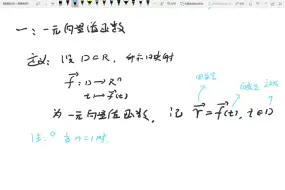 一：一元向量值函数
定义：设 D⊂R，称映射
f⃗：D→Rⁿ
t↦f⃗(t)
为一元向量值函数，记 r⃗=f⃗(t)，t∈D
因变量 自变量 定义域
注：① 当 n=1 时